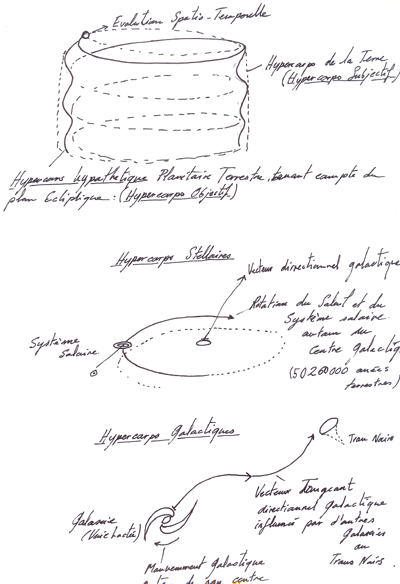 Evolution Spatio-Temporelle
Hypercorps de la Terre
(Hypercorps Subjectif)
Hypercorps hypothétique Planétaire Terrestre, tenant compte du
plan Ecliptique : (Hypercorps Objectif)
Hypercorps Stellaires
Vecteur directionnel galactique
Rotation du Soleil et du
Système solaire
autour du
Centre galactiq
Système
Solaire
années
terrestres)
Hypercorps Galactiques
Trou Noirs
Vecteur
directionnel galactique
influencé par d'autres
Galaxies
ou
Trous Noirs.
Galaxie
(Voie lactée)
Mouvement galactique
autour de son centre